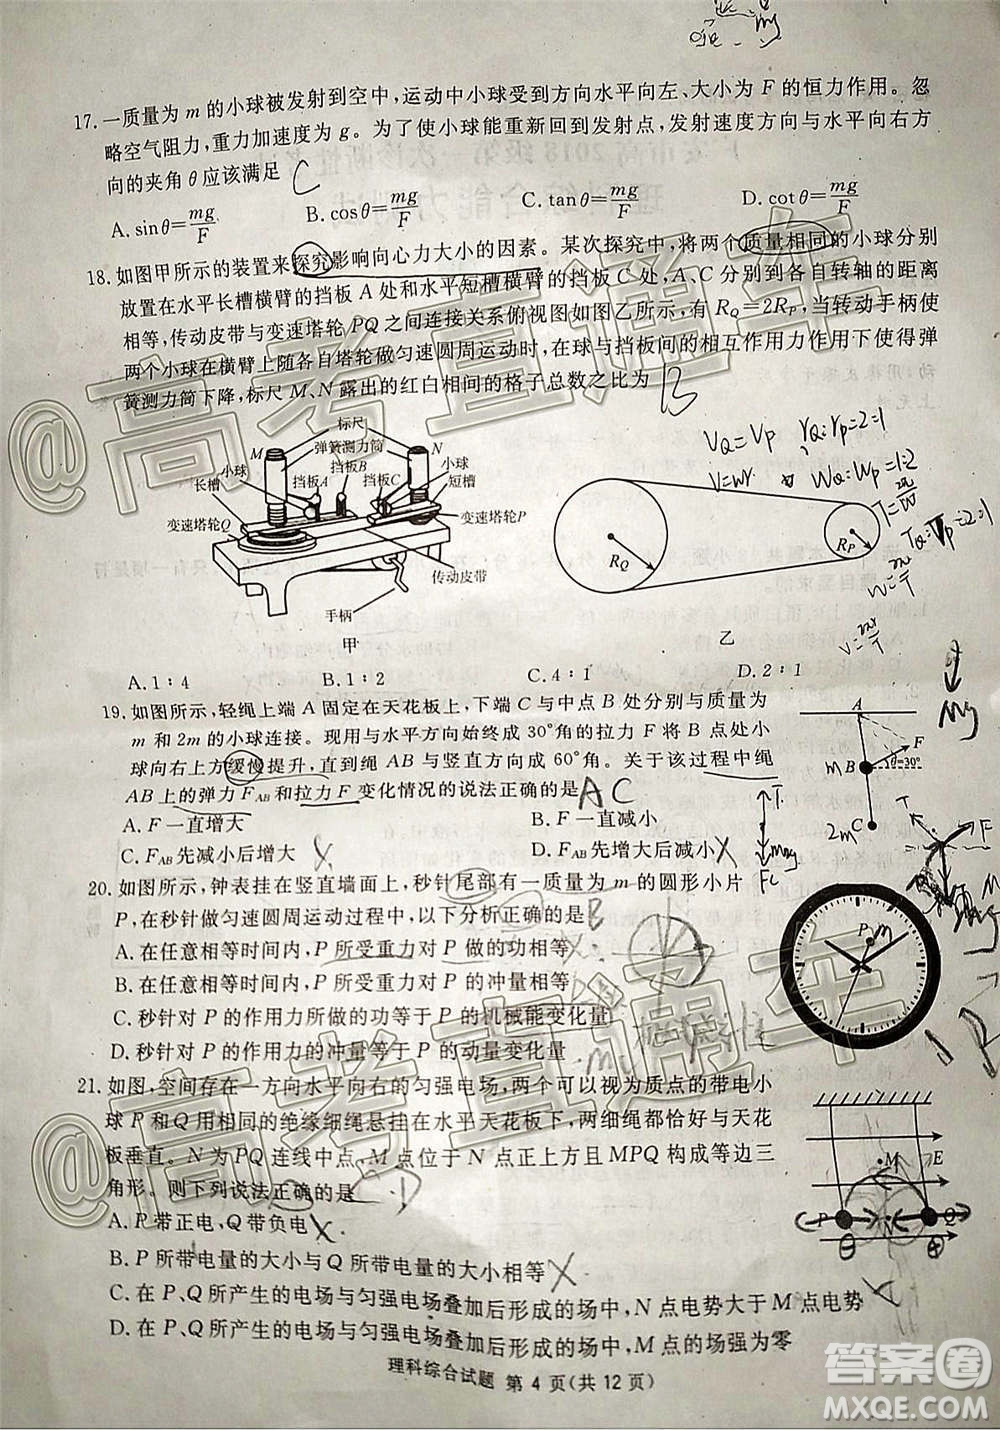 17.一质量为 m 的小球被发射到空中,运动中小球受到方向水平向左、大小为 F 的恒力作用。忽
略空气阻力,重力加速度为 g。为了使小球能重新回到发射点,发射速度方向与水平向右方
向的夹角 θ 应该满足 C
A. sinθ=mg/F B. cosθ=mg/F C. tanθ=mg/F D. cotθ=mg/F
18.如图甲所示的装置来探究影响向心力大小的因素。某次探究中,将两个质量相同的小球分别
放置在水平长槽横臂的挡板 A 处和水平短槽横臂的挡板 C 处,A、C 分别到各自转轴的距离
相等,传动皮带与变速塔轮 PQ 之间连接关系俯视图如图乙所示,有 RQ=2RP,当转动手柄使
两个小球在横臂上随各自塔轮做匀速圆周运动时,在球与挡板间的相互作用力作用下使弹
簧测力筒下降,标尺 M、N 露出的红白相间的格子总数之比为 B
标尺
M 弹簧测力筒 N
小球 挡板B 小球
长槽 挡板A 挡板C 短槽
变速塔轮Q 变速塔轮P
传动皮带
手柄
甲
RQ RP
乙
VQ=VP rQ:rP=2:1
A.1∶4 B.1∶2 C.4∶1 D.2∶1
19.如图所示,轻绳上端 A 固定在天花板上,下端 C 与中点 B 处分别与质量为
m 和 2m 的小球连接。现用与水平方向始终成 30°角的拉力 F 将 B 点处小
球向右上方缓慢提升,直到绳 AB 与竖直方向成 60°角。关于该过程中绳
AB 上的弹力 FAB 和拉力 F 变化情况的说法正确的是 AC
A. F 一直增大 B. F 一直减小
C. FAB 先减小后增大 D. FAB 先增大后减小
A
F
mB θ=30°
2m C
20.如图所示,钟表挂在竖直墙面上,秒针尾部有一质量为 m 的圆形小片
P,在秒针做匀速圆周运动过程中,以下分析正确的是 B
A. 在任意相等时间内,P 所受重力对 P 做的功相等
B. 在任意相等时间内,P 所受重力对 P 的冲量相等
C. 秒针对 P 的作用力所做的功等于 P 的机械能变化量
D. 秒针对 P 的作用力的冲量等于 P 的动量变化量
P m
21.如图,空间存在一方向水平向右的匀强电场,两个可以视为质点的带电小
球 P 和 Q 用相同的绝缘细绳悬挂在水平天花板下,两细绳都恰好与天花
板垂直。N 为 PQ 连线中点,M 点位于 N 点正上方且 MPQ 构成等边三
角形。则下列说法正确的是 CD
A. P 带正电,Q 带负电
B. P 所带电量的大小与 Q 所带电量的大小相等
C. 在 P、Q 所产生的电场与匀强电场叠加后形成的场中,N 点电势大于 M 点电势
D. 在 P、Q 所产生的电场与匀强电场叠加后形成的场中,M 点的场强为零
M E
P N Q
理科综合试题 第 4 页(共 12 页)
@高考直通车
@高考直通车
答案圈
MXQE.COM